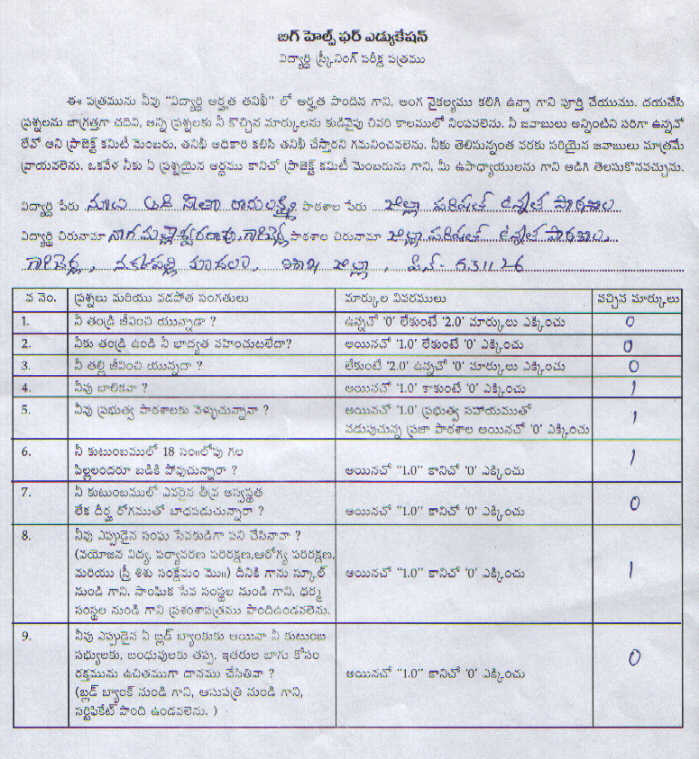 బిగ్ హెల్ప్ ఫర్ ఎడ్యుకేషన్
విద్యార్థి స్క్రీనింగ్ పరీక్ష పత్రము
ఈ పత్రమును నీవు "విద్యార్థి అర్హత తనిఖీ" లో అర్హత పొందిన గాని, అంగ వైకల్యము కలిగి ఉన్నా గాని పూర్తి చేయుము. దయచేసి
ప్రశ్నలను జాగ్రత్తగా చదివి, అన్ని ప్రశ్నలకు నీ కొచ్చిన మార్కులను కుడివైపు చివరి కాలములో నింపవలెను. నీ జవాబులు అన్నింటిని సరిగా ఉన్నవో
లేవో అని ప్రాజెక్ట్ కమిటీ మెంబరు, తనిఖీ అధికారి కలిసి తనిఖీ చేస్తారని గమనించవలెను. నీకు తెలిసినంత వరకు సరియైన జవాబులు మాత్రమే
వ్రాయవలెను. ఒకవేళ నీకు ఏ ప్రశ్నయైన అర్థము కానిచో ప్రాజెక్ట్ కమిటీ మెంబరును గాని, మీ ఉపాధ్యాయులను గాని అడిగి తెలుసుకొనవచ్చును.
విద్యార్థి పేరు పాఠశాల పేరు జిల్లా పరిషత్ ఉన్నత పాఠశాల
విద్యార్థి చిరునామా పాఠశాల చిరునామా జిల్లా పరిషత్ ఉన్నత పాఠశాల,
జిల్లా, పిన్- 531126
వ నెం. ప్రశ్నలు మరియు వడపోత సంగతులు మార్కుల వివరములు వచ్చిన మార్కులు
1. నీ తండ్రి జీవించి యున్నాడా ? ఉన్నచో '0' లేకుంటే '2.0' మార్కులు ఎక్కించు 0
2. నీకు తండ్రి ఉండి నీ బాధ్యత వహించుటలేదా? అయినచో '1.0' లేకుంటే '0' ఎక్కించు 0
3. నీ తల్లి జీవించి యున్నదా ? లేకుంటే '2.0' ఉన్నచో '0' మార్కులు ఎక్కించు 0
4. నీవు బాలికవా ? అయినచో '1.0' కాకుంటే '0' ఎక్కించు 1
5. నీవు ప్రభుత్వ పాఠశాలకు వెళ్ళుచున్నావా ? అయినచో '1.0' ప్రభుత్వ సహాయముతో
నడుపుచున్న ప్రజా పాఠశాల అయినచో '0' ఎక్కించు 1
6. నీ కుటుంబములో 18 సం॥లోపు గల
పిల్లలందరూ బడికి పోవుచున్నారా ? అయినచో "1.0" కానిచో '0' ఎక్కించు 1
7. నీ కుటుంబములో ఎవరైన తీవ్ర అస్వస్థత
లేక దీర్ఘ రోగముతో బాధపడుచున్నారా ? అయినచో "1.0" కానిచో '0' ఎక్కించు 0
8. నీవు ఎప్పుడైన సంఘ సేవకుడిగా పని చేసినావా ?
(వయోజన విద్య, పర్యావరణ పరిరక్షణ,ఆరోగ్య పరిరక్షణ,
మరియు స్త్రీ శిశు సంక్షేమం మొ॥) దీనికి గాను స్కూల్
నుండి గాని, సాంఘిక సేవ సంస్థల నుండి గాని, ధర్మ
సంస్థల నుండి గాని ప్రశంశాపత్రము పొందిఉండవలెను. అయినచో "1.0" కానిచో '0' ఎక్కించు 1
9. నీవు ఎప్పుడైన ఏ బ్లడ్ బ్యాంకుకు అయినా నీ కుటుంబ
సభ్యులకు, బంధువులకు తప్ప, ఇతరుల బాగు కోసం
రక్తమును ఉచితముగా దానము చేసితివా ?
(బ్లడ్ బ్యాంక్ నుండి గాని, ఆసుపత్రి నుండి గాని,
సర్టిఫికేట్ పొంది ఉండవలెను. ) అయినచో "1.0" కానిచో '0' ఎక్కించు 0